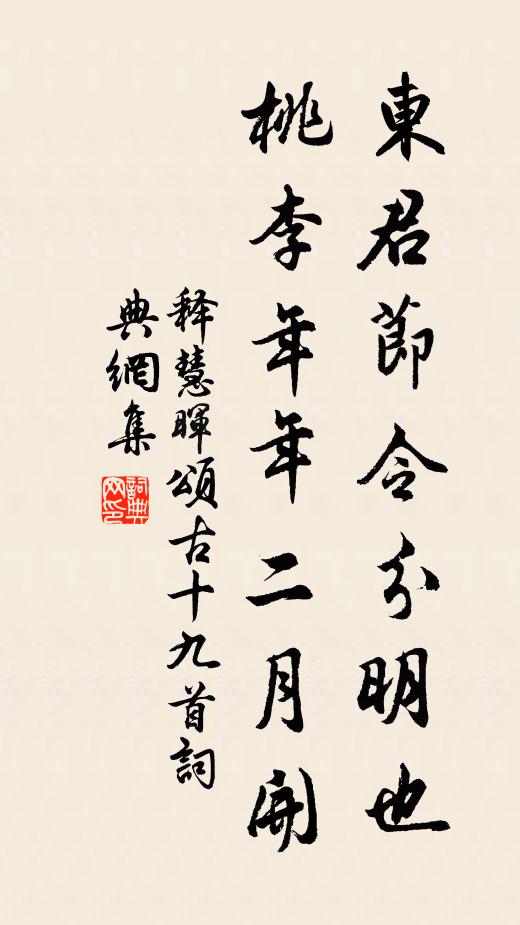 東君節令分明也
桃李年年二月開
释慧暉頌古十九首詞
典網集
詞典
网印